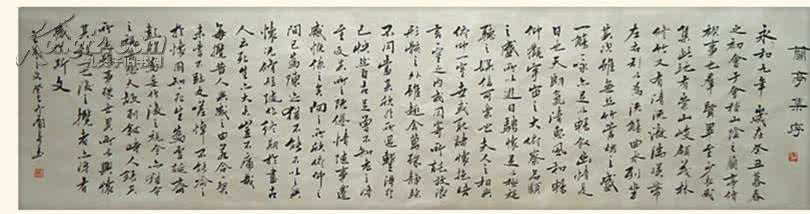 蘭亭集序
永和九年歲在癸丑暮春
之初會于會稽山陰之蘭亭脩
禊事也群賢畢至少長咸
集此地有崇山峻領茂林
修竹又有清流激湍映帶
左右引以為流觴曲水列坐
其次雖無絲竹管弦之盛
一觴一詠亦足以暢敘幽情是
日也天朗氣清惠風和暢
仰觀宇宙之大俯察品類
之盛所以遊目騁懷足以極視
聽之娛信可樂也夫人之相與
俯仰一世或取諸懷抱悟
言一室之內或因寄所託放浪
形骸之外雖趣舍萬殊靜躁
不同當其欣於所遇暫得於
己快然自足曾不知老之將
至及其所之既倦情隨事遷
感慨係之矣向之所欣俛仰之
間已為陳迹猶不能不以之興
懷況修短隨化終期於盡古
人云死生亦大矣豈不痛哉
每攬昔人興感之由若合一契
未嘗不臨文嗟悼不能喻之
於懷固知一死生為虛誕齊
彭殤為妄作後之視今亦猶今
之視昔悲夫故列敘時人錄其
所述雖世殊事異所以興懷
其致一也後之攬者亦將有
感於斯文